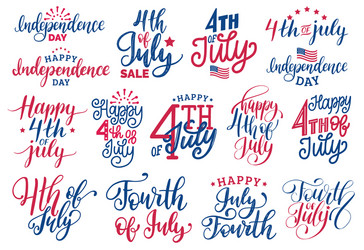 Independence
DAY
HAPPY
Independence
DAY
4th
of
July
SALE
4TH
of
July
4th OF july
Independence
DAY
Happy
4th
july
Happy
4th of
July
HAPPY
4TH
OF July
happy
4th of
July
Happy
4TH OF
July
4th of
July
Fourth
of July
HAPPY
July
Fourth
Fourth
of July